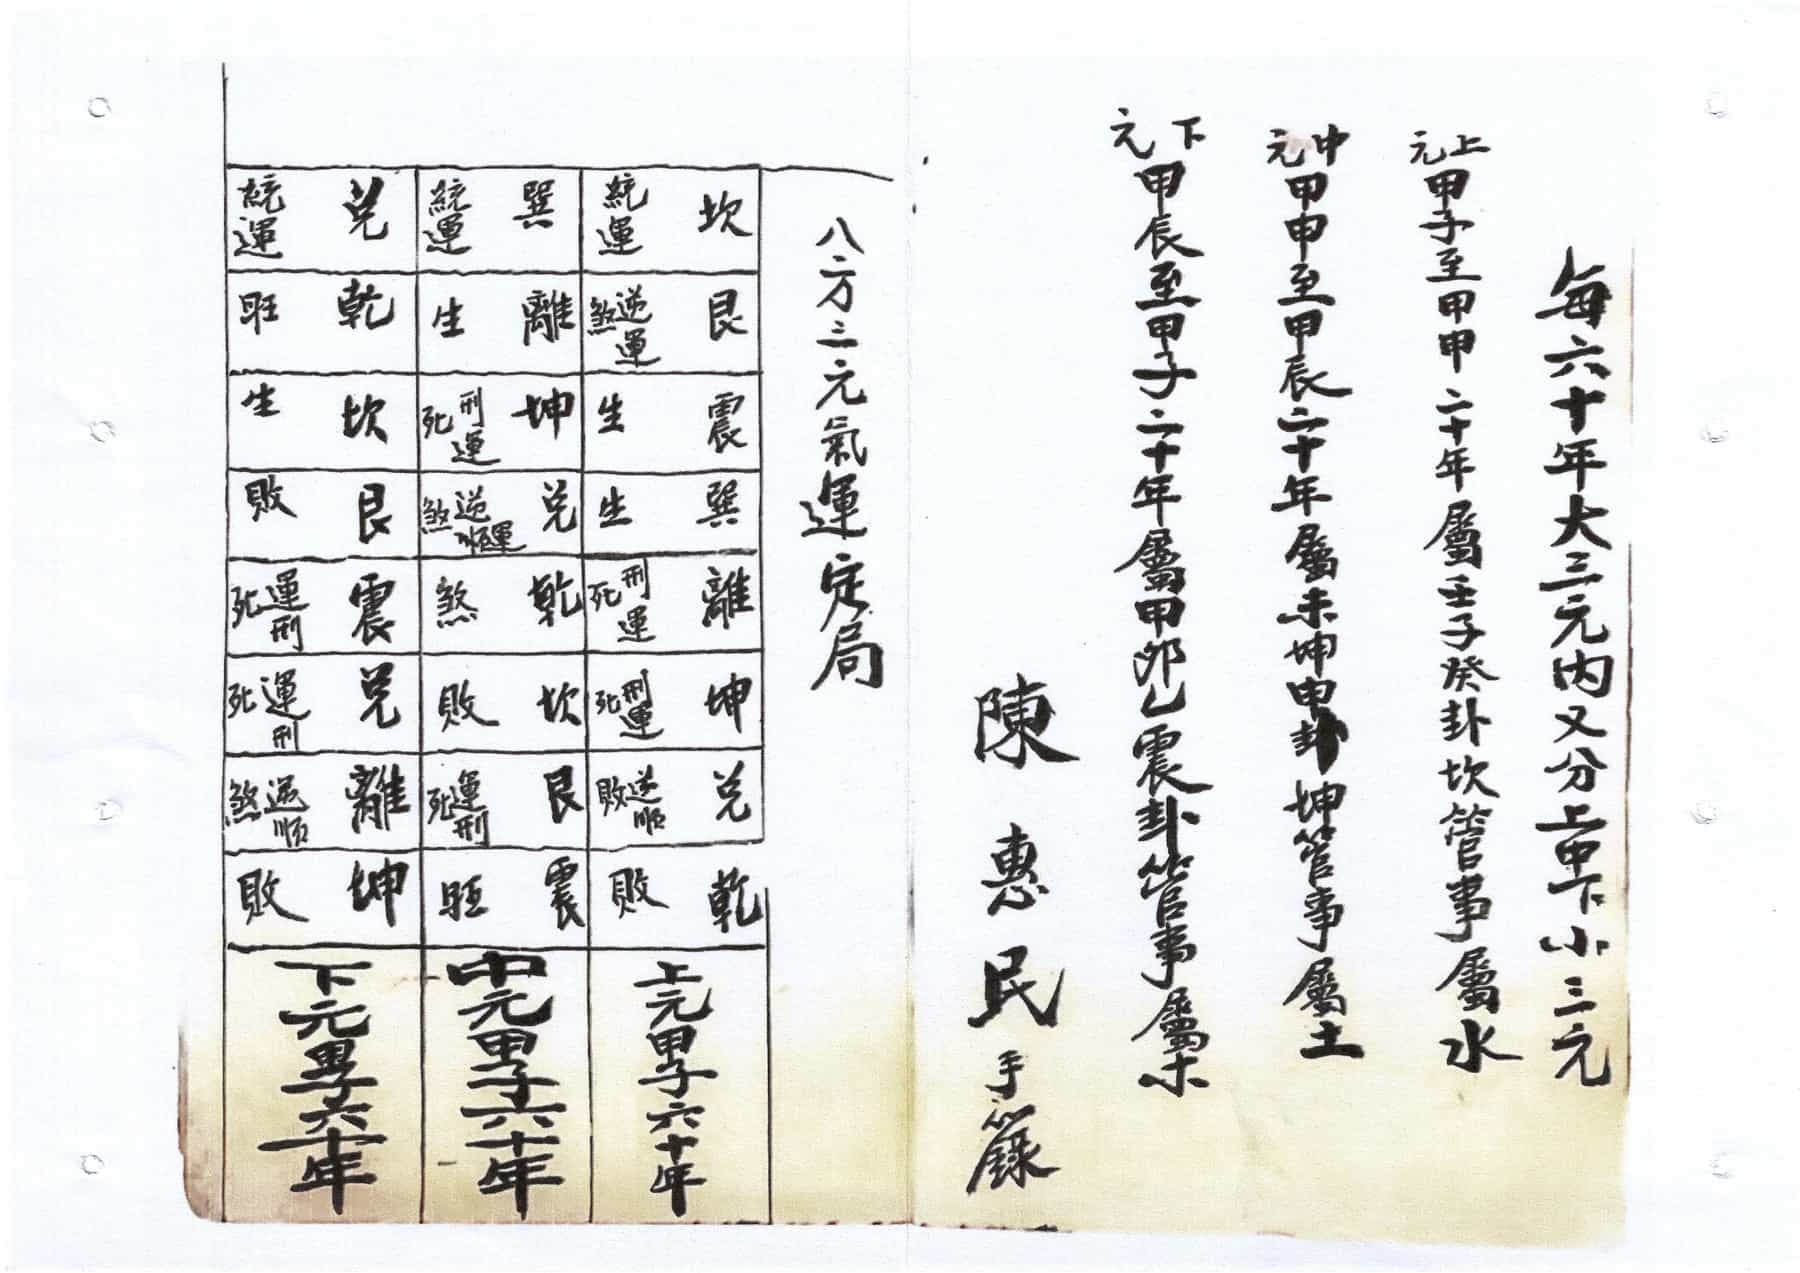 每六十年大三元內又分上中下小三元
上元甲子至甲申二十年屬壬子癸卦坎管事屬水
中元甲申至甲辰二十年屬未坤申卦坤管事屬土
下元甲辰至甲子二十年屬甲卯乙震卦管事屬木
陳惠民手錄
八方三元氣運定局
坎 統運
艮 逆運煞
震 生
巽 生
離 刑運死
坤 刑運死
兌 逆順敗
乾 敗
上元甲子六十年
巽 統運
離 生
坤 刑運死
兌 逆順運煞
乾 煞
坎 敗
艮 運刑死
震 旺
中元甲子六十年
兌 統運
乾 旺
坎 生
艮 敗
震 運刑死
兌 運刑死
離 逆順煞
坤 敗
下元甲子六十年